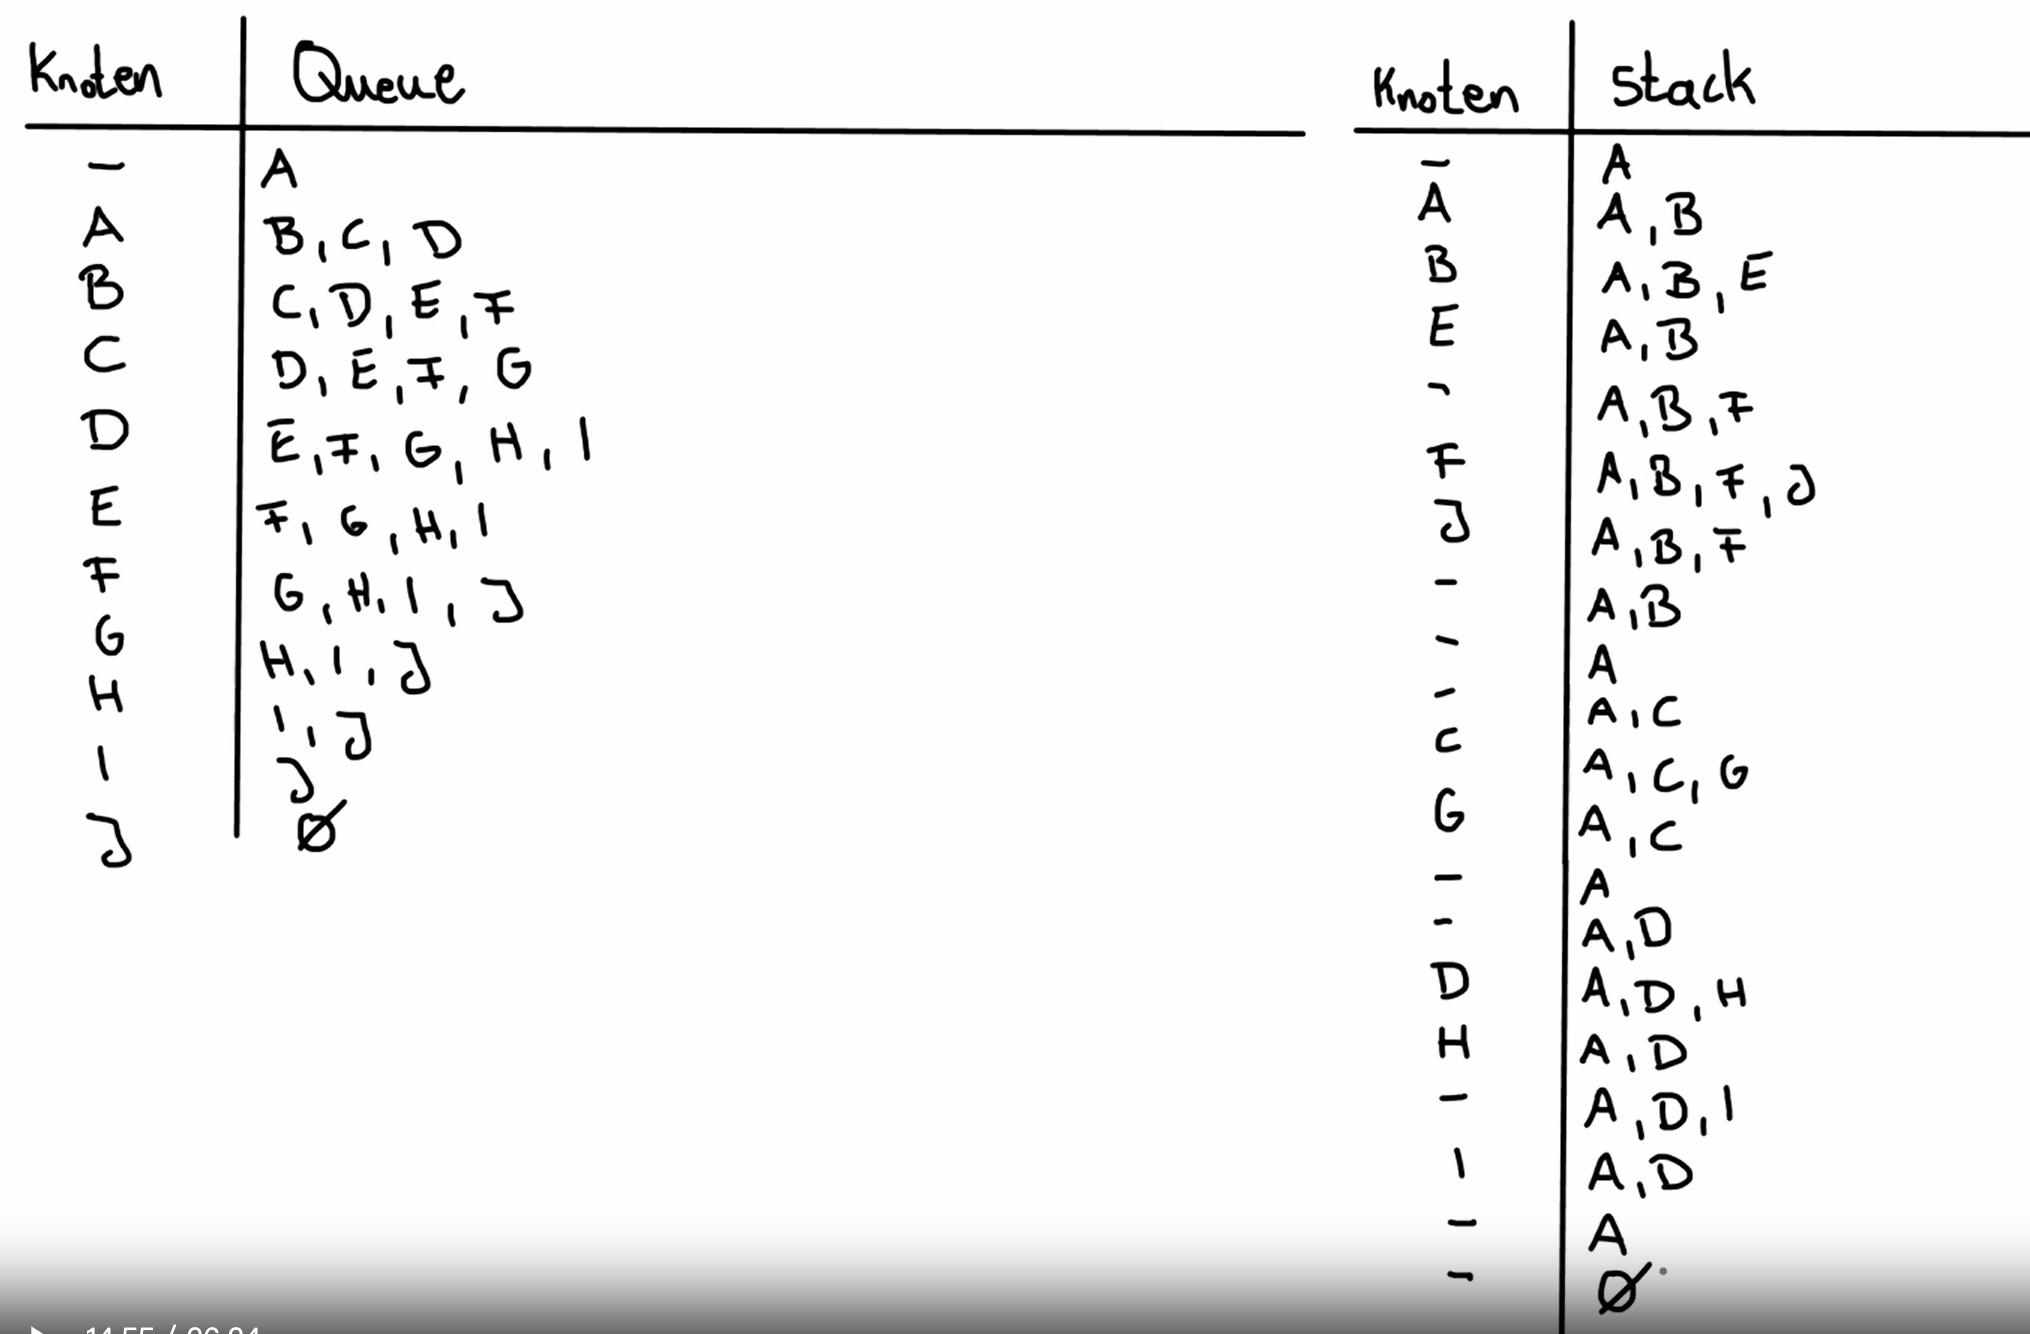 Knoten Queue
- A
A B, C, D
B C, D, E, F
C D, E, F, G
D E, F, G, H, I
E F, G, H, I
F G, H, I, J
G H, I, J
H I, J
I J
J Ø
Knoten Stack
- A
A A, B
B A, B, E
E A, B
- A, B, F
F A, B, F, J
J A, B, F
- A, B
- A
- A, C
C A, C, G
G A, C
- A
- A, D
D A, D, H
H A, D
- A, D, I
I A, D
- A
- Ø